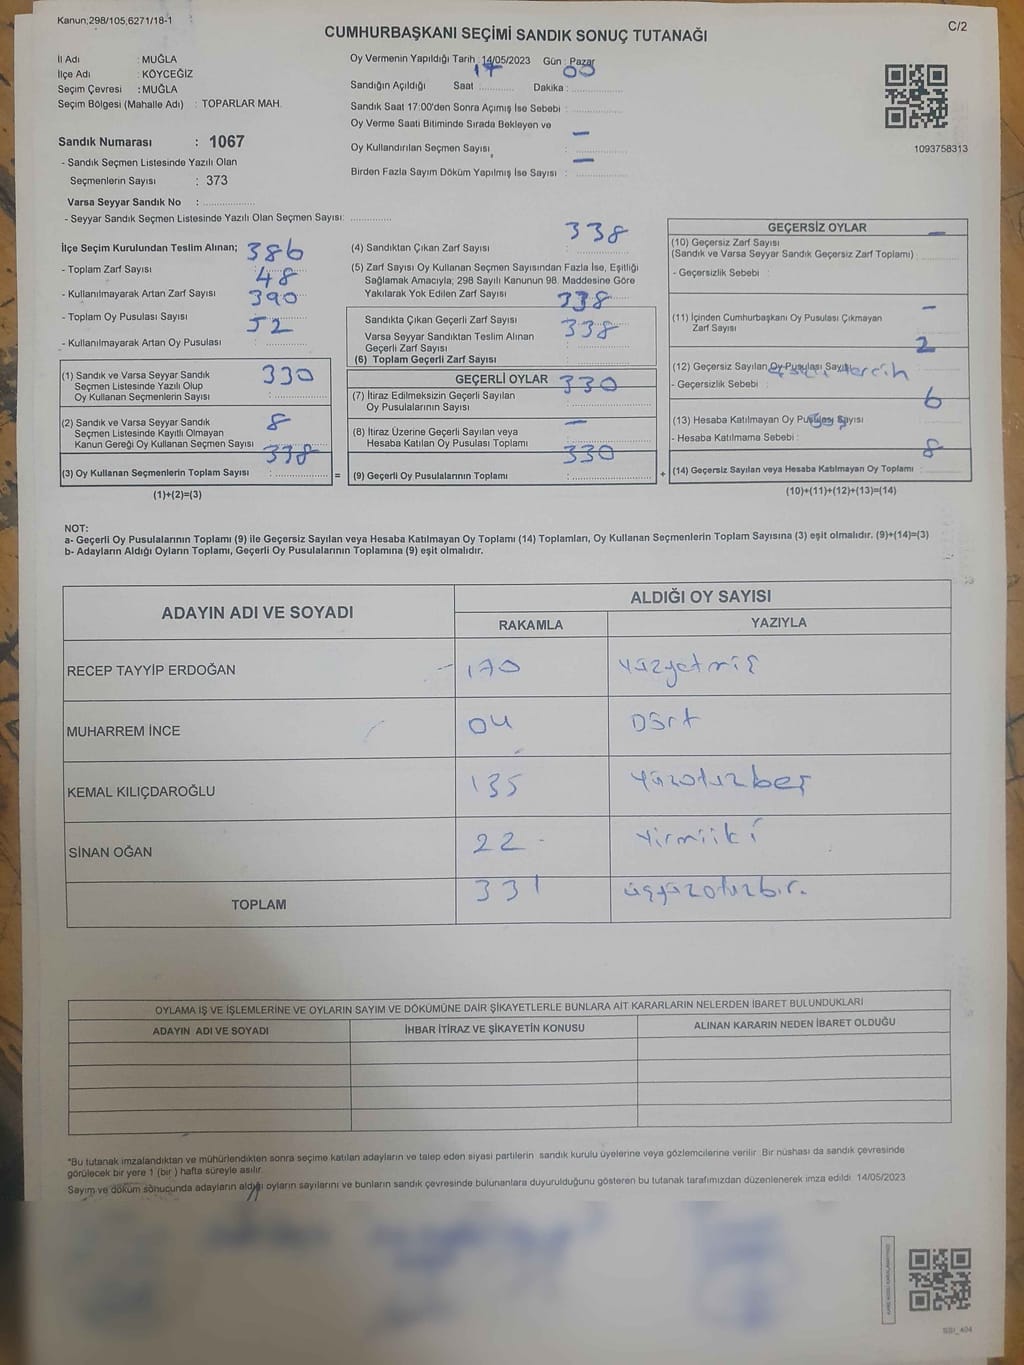 Kanun;298/105,6271/18-1
C/2
CUMHURBAŞKANI SEÇİMİ SANDIK SONUÇ TUTANAĞI
İl Adı : MUĞLA
İlçe Adı : KÖYCEĞİZ
Seçim Çevresi : MUĞLA
Seçim Bölgesi (Mahalle Adı) : TOPARLAR MAH.
Sandık Numarası : 1067
- Sandık Seçmen Listesinde Yazılı Olan
Seçmenlerin Sayısı : 373
Varsa Seyyar Sandık No : ..................
- Seyyar Sandık Seçmen Listesinde Yazılı Olan Seçmen Sayısı: ..............
Oy Vermenin Yapıldığı Tarih : 14/05/2023 Gün : Pazar
Sandığın Açıldığı Saat : 17 Dakika : 00
Sandık Saat 17:00'den Sonra Açımış İse Sebebi :
Oy Verme Saati Bitiminde Sırada Bekleyen ve
Oy Kullandırılan Seçmen Sayısı : —
Birden Fazla Sayım Döküm Yapılmış İse Sayısı : —
1093758313
İlçe Seçim Kurulundan Teslim Alınan;
- Toplam Zarf Sayısı : 386
- Kullanılmayarak Artan Zarf Sayısı : 48
- Toplam Oy Pusulası Sayısı : 390
- Kullanılmayarak Artan Oy Pusulası : 52
(1) Sandık ve Varsa Seyyar Sandık
Seçmen Listesinde Yazılı Olup
Oy Kullanan Seçmenlerin Sayısı : 330
(2) Sandık ve Varsa Seyyar Sandık
Seçmen Listesinde Kayıtlı Olmayan
Kanun Gereği Oy Kullanan Seçmen Sayısı : 8
(3) Oy Kullanan Seçmenlerin Toplam Sayısı : 338
(1)+(2)=(3)
(4) Sandıktan Çıkan Zarf Sayısı : 338
(5) Zarf Sayısı Oy Kullanan Seçmen Sayısından Fazla İse, Eşitliği
Sağlamak Amacıyla; 298 Sayılı Kanunun 98. Maddesine Göre
Yakılarak Yok Edilen Zarf Sayısı :
Sandıkta Çıkan Geçerli Zarf Sayısı : 338
Varsa Seyyar Sandıktan Teslim Alınan
Geçerli Zarf Sayısı :
(6) Toplam Geçerli Zarf Sayısı : 338
GEÇERLİ OYLAR
(7) İtiraz Edilmeksizin Geçerli Sayılan
Oy Pusulalarının Sayısı : 330
(8) İtiraz Üzerine Geçerli Sayılan veya
Hesaba Katılan Oy Pusulası Toplamı : —
=
(9) Geçerli Oy Pusulalarının Toplamı : 330
+
GEÇERSİZ OYLAR
(10) Geçersiz Zarf Sayısı
(Sandık ve Varsa Seyyar Sandık Geçersiz Zarf Toplamı) : —
- Geçersizlik Sebebi :
(11) İçinden Cumhurbaşkanı Oy Pusulası Çıkmayan
Zarf Sayısı : —
(12) Geçersiz Sayılan Oy Pusulası Sayısı : 2
- Geçersizlik Sebebi : tercih
(13) Hesaba Katılmayan Oy Pusulası Sayısı : 6
- Hesaba Katılmama Sebebi :
(14) Geçersiz Sayılan veya Hesaba Katılmayan Oy Toplamı : 8
(10)+(11)+(12)+(13)=(14)
NOT:
a- Geçerli Oy Pusulalarının Toplamı (9) ile Geçersiz Sayılan veya Hesaba Katılmayan Oy Toplamı (14) Toplamları, Oy Kullanan Seçmenlerin Toplam Sayısına (3) eşit olmalıdır. (9)+(14)=(3)
b- Adayların Aldığı Oyların Toplamı, Geçerli Oy Pusulalarının Toplamına (9) eşit olmalıdır.
ADAYIN ADI VE SOYADI
ALDIĞI OY SAYISI
RAKAMLA YAZIYLA
RECEP TAYYİP ERDOĞAN 170 Yüzyetmiş
MUHARREM İNCE 04 Dört
KEMAL KILIÇDAROĞLU 135 Yüzotuzbeş
SİNAN OĞAN 22 Yirmiiki
TOPLAM 331 üçyüzotuzbir.
OYLAMA İŞ VE İŞLEMLERİNE VE OYLARIN SAYIM VE DÖKÜMÜNE DAİR ŞİKAYETLERLE BUNLARA AİT KARARLARIN NELERDEN İBARET BULUNDUKLARI
ADAYIN ADI VE SOYADI İHBAR İTİRAZ VE ŞİKAYETİN KONUSU ALINAN KARARIN NEDEN İBARET OLDUĞU
*Bu tutanak imzalandıktan ve mühürlendikten sonra seçime katılan adayların ve talep eden siyasi partilerin sandık kurulu üyelerine veya gözlemcilerine verilir. Bir nüshası da sandık çevresinde
görülecek bir yere 1 (bir ) hafta süreyle asılır.
Sayım ve döküm sonucunda adayların aldığı oyların sayılarını ve bunların sandık çevresinde bulunanlara duyurulduğunu gösteren bu tutanak tarafımızdan düzenlenerek imza edildi 14/05/2023
SSI_404